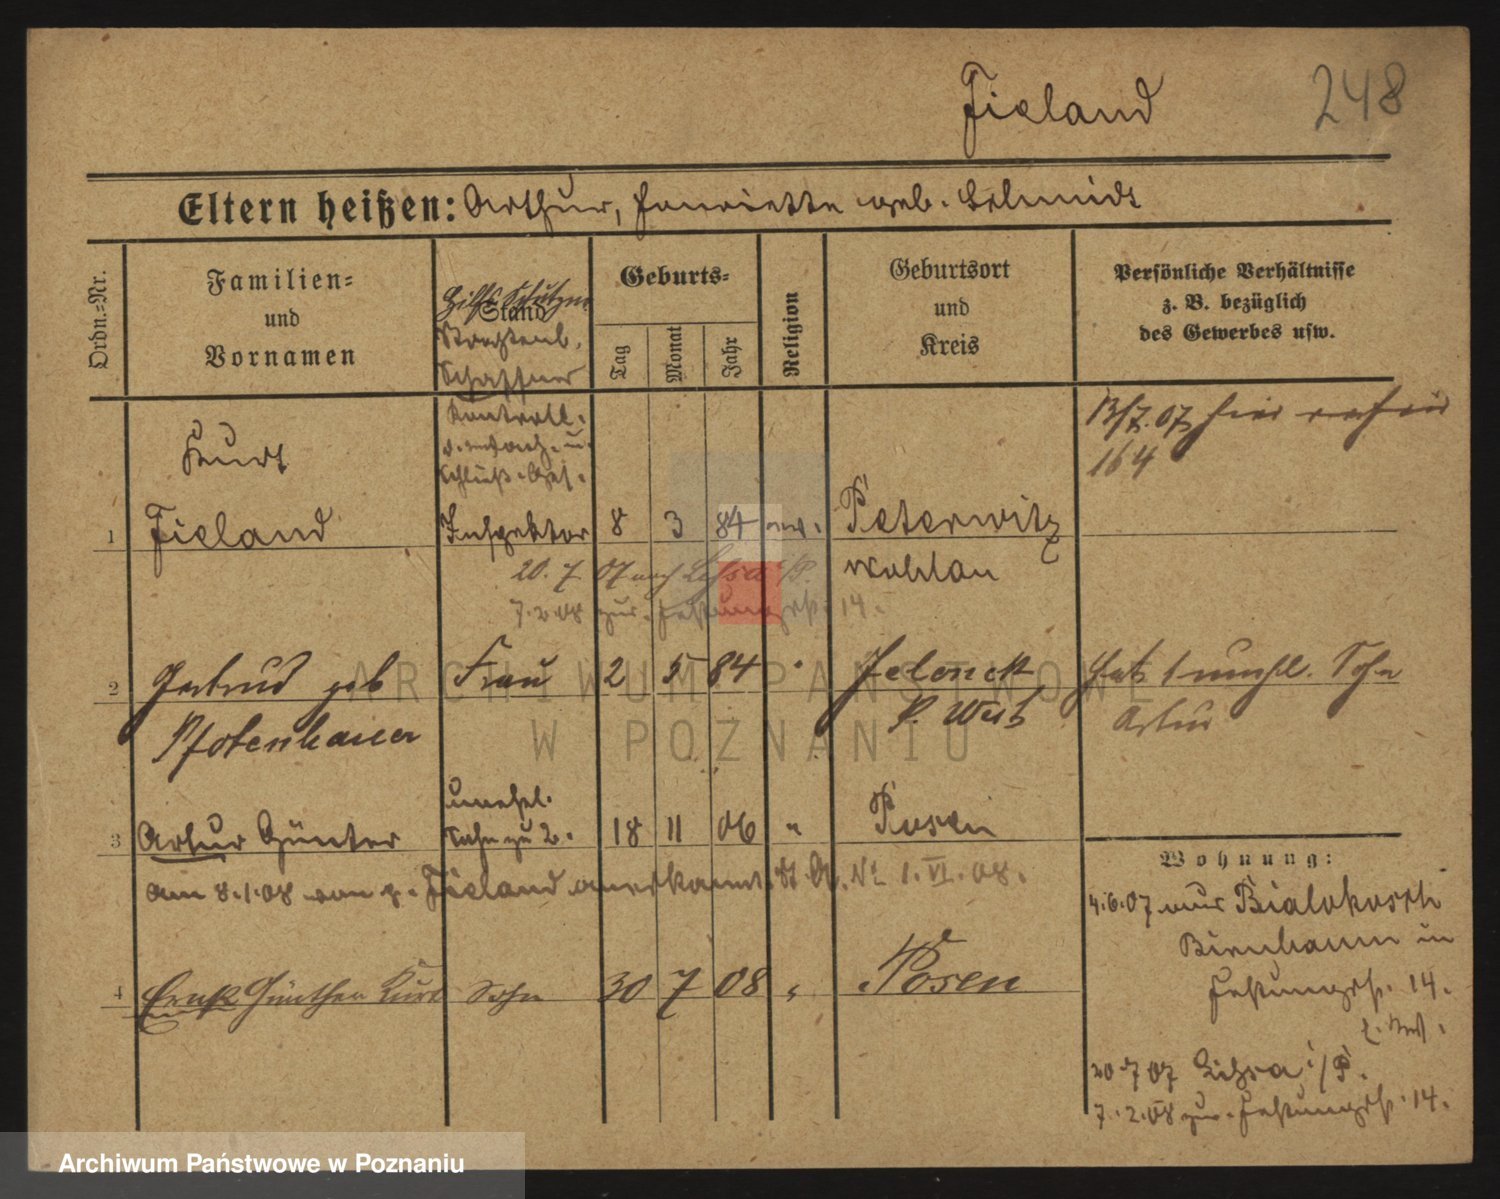 Fieland 248
Eltern heißen: Arthur, Henriette geb. Schmidt
Ordn.-Nr.
Familien-
und
Vornamen
Hilfs Schutzm.
Stand
Schaffner
Kontroll.
Schließ-Ges.
Geburts-
Tag
Monat
Jahr
Religion
Geburtsort
und
Kreis
Persönliche Verhältnisse
z. B. bezüglich
des Gewerbes usw.
07 hier
164
Kurt
1 Fieland Inspektor 8 3 84 ev. Peterwitz
Wohlau
20.7.07 nach Lissa i/P.
7.2.08 zur. Festungsstr. 14.
2 Gertrud geb Frau 2 5 84 " Hat 1 unehl. Sohn
Pfotenhauer P. West Artur
unehel.
3 Artur Günter Sohn zu 2. 18 11 06 " Posen
am 8.1.08 von p. Fieland anerkannt. St. A. No 1. VI. 08.
4 Ernst Günther Kurt Sohn 30 7 08 " Posen
Wohnung:
4.6.07 aus Bialokosch
Birnbaum in
Festungsstr. 14.
20.7.07 Lissa i/P.
7.2.08 zur. Festungsstr. 14.
ARCHIWUM PAŃSTWOWE
W POZNANIU
Archiwum Państwowe w Poznaniu